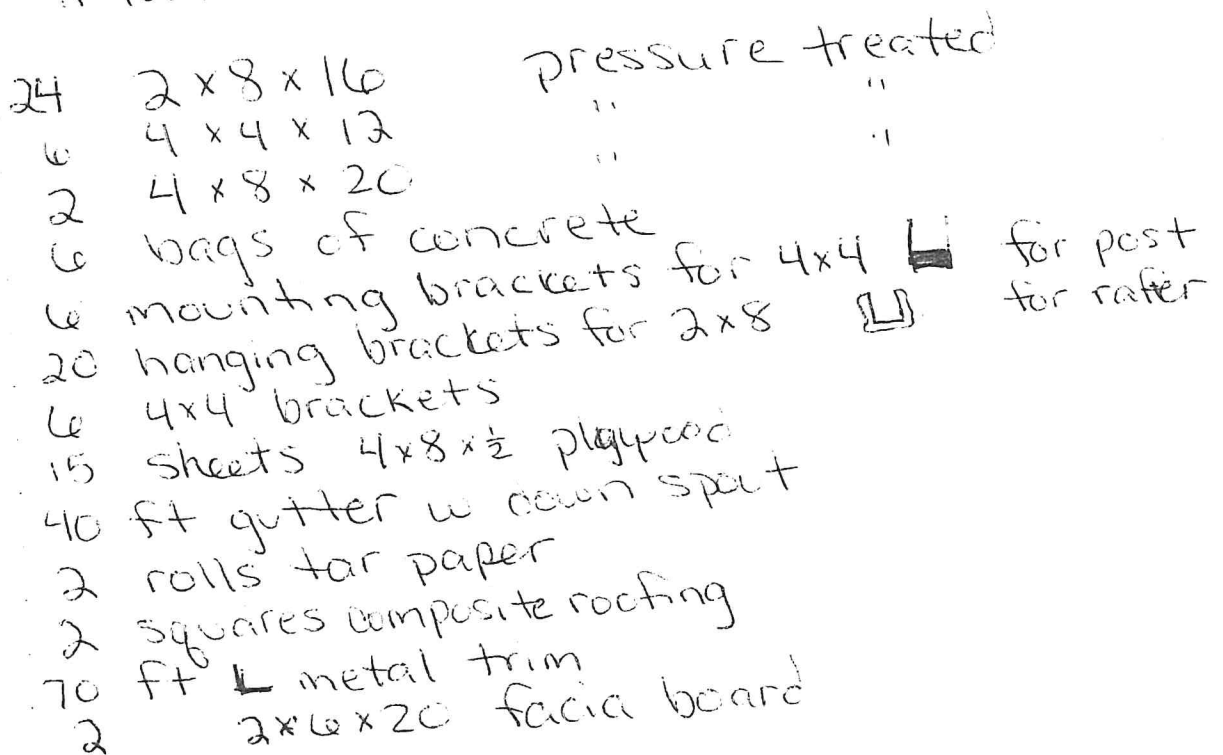 24 2x8x16 pressure treated
6 4x4x12 " "
2 4x8x20 " "
6 bags of concrete
6 mounting brackets for 4x4 for post
20 hanging brackets for 2x8 for rafter
6 4x4 brackets
15 sheets 4x8x½ plywood
40 ft gutter w down spout
2 rolls tar paper
2 squares composite roofing
70 ft L metal trim
2 2x6x20 facia board